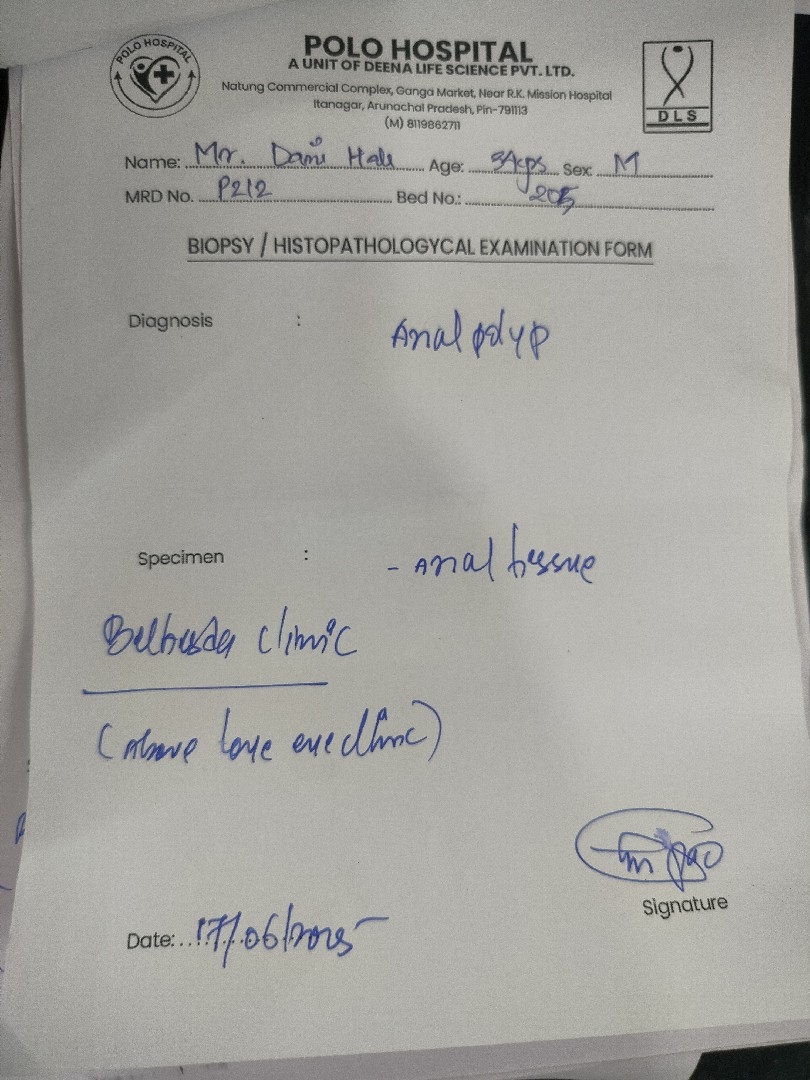 POLO HOSPITAL
POLO HOSPITAL
A UNIT OF DEENA LIFE SCIENCE PVT. LTD.
Natung Commercial Complex, Ganga Market, Near R.K. Mission Hospital
Itanagar, Arunachal Pradesh, Pin-791113
(M) 8119862711
DLS
Name: Mr. Dani Hale Age: Sex: M
MRD No. P212 Bed No.: 205
BIOPSY / HISTOPATHOLOGYCAL EXAMINATION FORM
Diagnosis : Anal polyp
Specimen : - Anal tissue
clinic
(Above eye clinic)
Signature
Date: 17/06/2025